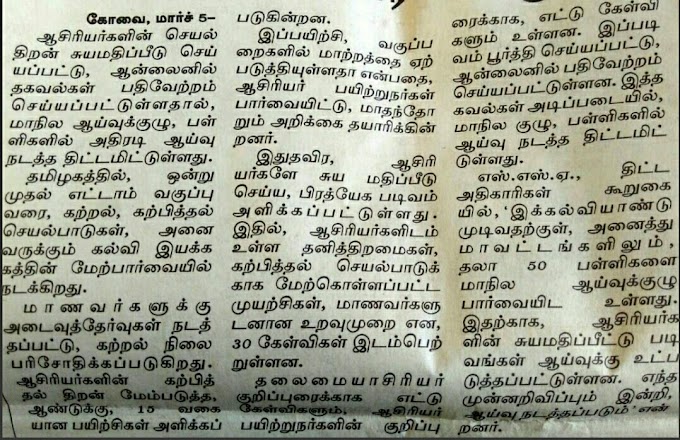 கோவை, மார்ச் 5–
ஆசிரியர்களின் செயல்
திறன் சுயமதிப்பீடு செய்
யப்பட்டு, ஆன்லைனில்
தகவல்கள் பதிவேற்றம்
செய்யப்பட்டுள்ளதால்,
மாநில ஆய்வுக்குழு, பள்
ளிகளில் அதிரடி ஆய்வு
நடத்த திட்டமிட்டுள்ளது.
தமிழகத்தில், ஒன்று
முதல் எட்டாம் வகுப்பு
வரை, கற்றல், கற்பித்தல்
செயல்பாடுகள், அனை
வருக்கும் கல்வி இயக்க
கத்தின் மேற்பார்வையில்
நடக்கிறது.
மாணவர்களுக்கு
அடைவுத்தேர்வுகள் நடத்
தப்பட்டு, கற்றல் நிலை
பரிசோதிக்கப்படுகிறது.
ஆசிரியர்களின் கற்பித்
தல் திறன் மேம்படுத்த,
ஆண்டுக்கு, 15 வகை
யான பயிற்சிகள் அளிக்கப்
படுகின்றன.
இப்பயிற்சி, வகுப்ப
றைகளில் மாற்றத்தை ஏற்
படுத்தியுள்ளதா என்பதை,
ஆசிரியர் பயிற்றுநர்கள்
பார்வையிட்டு, மாதந்தோ
றும் அறிக்கை தயாரிக்கின்
றனர்.
இதுதவிர, ஆசிரி
யர்களே சுய மதிப்பீடு
செய்ய, பிரத்யேக படிவம்
அளிக்கப்பட்டுள்ளது.
இதில், ஆசிரியர்களிடம்
உள்ள தனித்திறமைகள்,
கற்பித்தல் செயல்பாடுக்
காக மேற்கொள்ளப்பட்ட
முயற்சிகள், மாணவர்களு
டனான உறவுமுறை என,
30 கேள்விகள் இடம்பெற்
றுள்ளன.
தலைமையாசிரியர்
குறிப்புரைக்காக எட்டு
கேள்விகளும், ஆசிரியர்
பயிற்றுநர்களின் குறிப்பு
ரைக்காக, எட்டு கேள்வி
களும் உள்ளன. இப்படி
வம் பூர்த்தி செய்யப்பட்டு,
ஆன்லைனில் பதிவேற்றம்
செய்யப்பட்டுள்ளன. இத்த
கவல்கள் அடிப்படையில்,
மாநில குழு, பள்ளிகளில்
ஆய்வு நடத்த திட்டமிட்
டுள்ளது.
எஸ்.எஸ்.ஏ., திட்ட
அதிகாரிகள் கூறுகை
யில், 'இக்கல்வியாண்டு
முடிவதற்குள், அனைத்து
மாவட்டங்களிலும்,
தலா 50 பள்ளிகளை
மாநில ஆய்வுக்குழு
பார்வையிட உள்ளது.
இதற்காக, ஆசிரியர்க
ளின் சுயமதிப்பீட்டு படி
வங்கள் ஆய்வுக்கு உட்ப
டுத்தப்பட்டுள்ளன. எந்த
முன்னறிவிப்பும் இன்றி,
ஆய்வு நடத்தப்படும்' என்
றனர்.